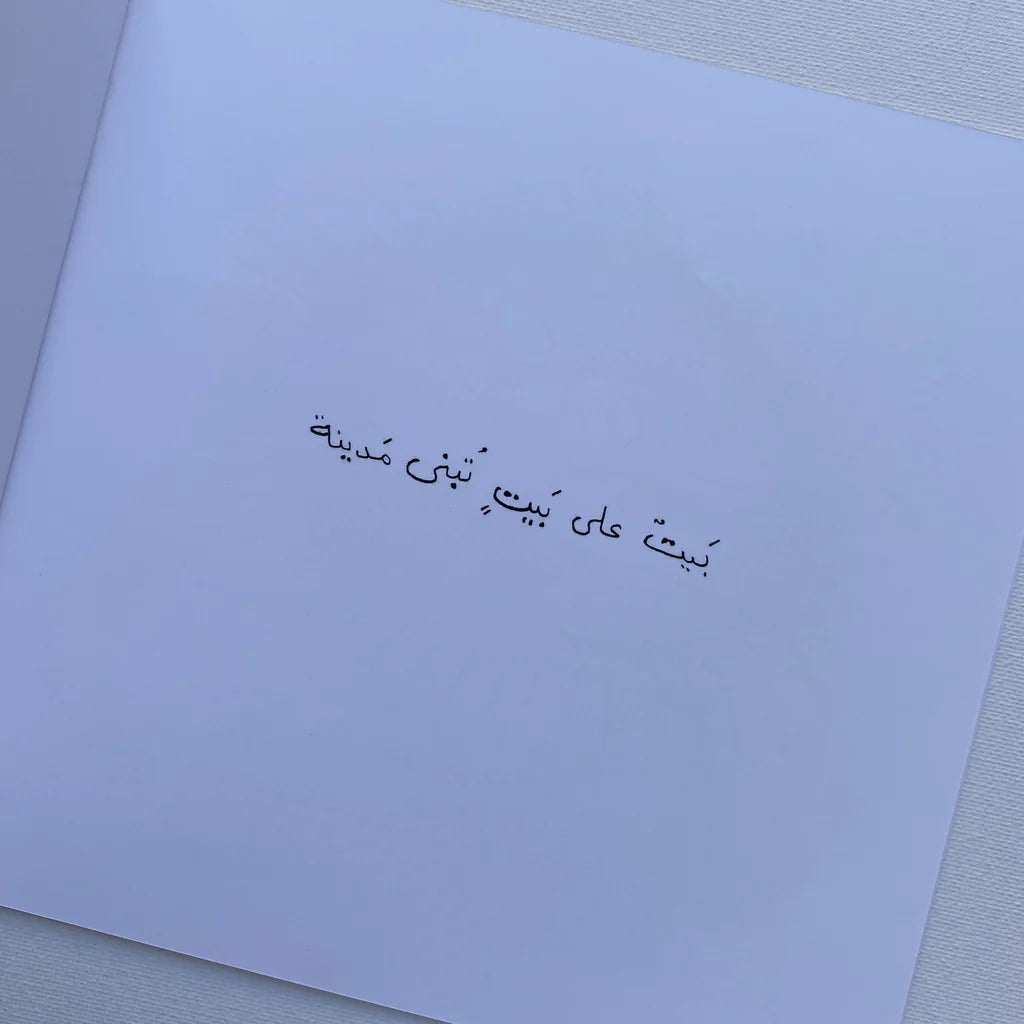 بَيتٌ على بَيتٍ تُبنى مَدينة